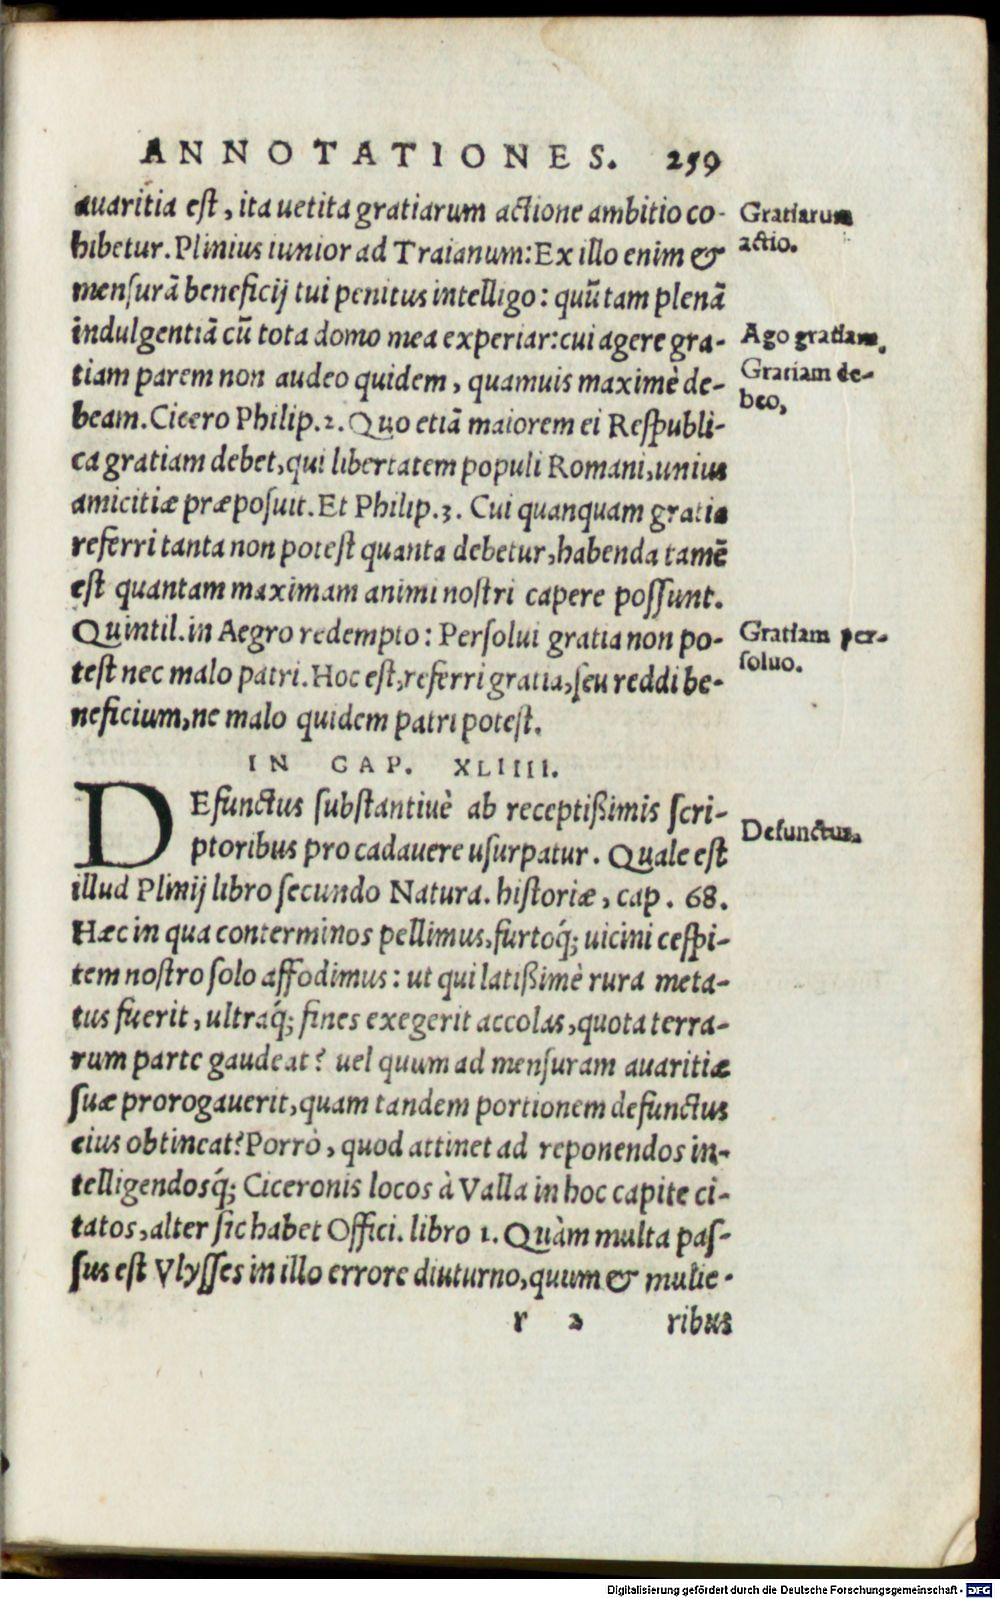 ANNOTATIONES. 259
auaritia est, ita uetita gratiarum actione ambitio co-
hibetur. Plinius iunior ad Traianum: Ex illo enim &
mensurā beneficij tui penitus intelligo: quū tam plenā
indulgentiā cū tota domo mea experiar: cui agere gra-
tiam parem non audeo quidem, quamuis maximè de-
beam. Cicero Philip. 2. Quo etiā maiorem ei Respubli-
ca gratiam debet, qui libertatem populi Romani, unius
amicitiæ præposuit. Et Philip. 3. Cui quanquam gratia
referri tanta non potest quanta debetur, habenda tamē
est quantam maximam animi nostri capere possunt.
Quintil. in Aegro redempto: Persolui gratia non po-
test nec malo patri. Hoc est, referri gratia, seu reddi be-
neficium, ne malo quidem patri potest.
Gratiarum
actio.
Ago gratiam.
Gratiam de-
beo,
Gratiam per-
soluo.
IN CAP. XLIIII.
DEfunctus substantiuè ab receptißimis scri-
ptoribus pro cadauere usurpatur. Quale est
illud Plinij libro secundo Natura. historiæ, cap. 68.
Hæc in qua conterminos pellimus, furtoq́; uicini cespi-
tem nostro solo affodimus: ut qui latißimè rura meta-
tus fuerit, ultraq́; fines exegerit accolas, quota terra-
rum parte gaudeat? uel quum ad mensuram auaritiæ
suæ prorogauerit, quam tandem portionem defunctus
eius obtineat? Porrò, quod attinet ad reponendos in-
telligendosq́; Ciceronis locos à Valla in hoc capite ci-
tatos, alter sic habet Offici. libro 1. Quàm multa pas-
sus est Vlysses in illo errore diuturno, quum & mulie-
Defunctus.
r 2 ribus
Digitalisierung gefördert durch die Deutsche Forschungsgemeinschaft - DFG